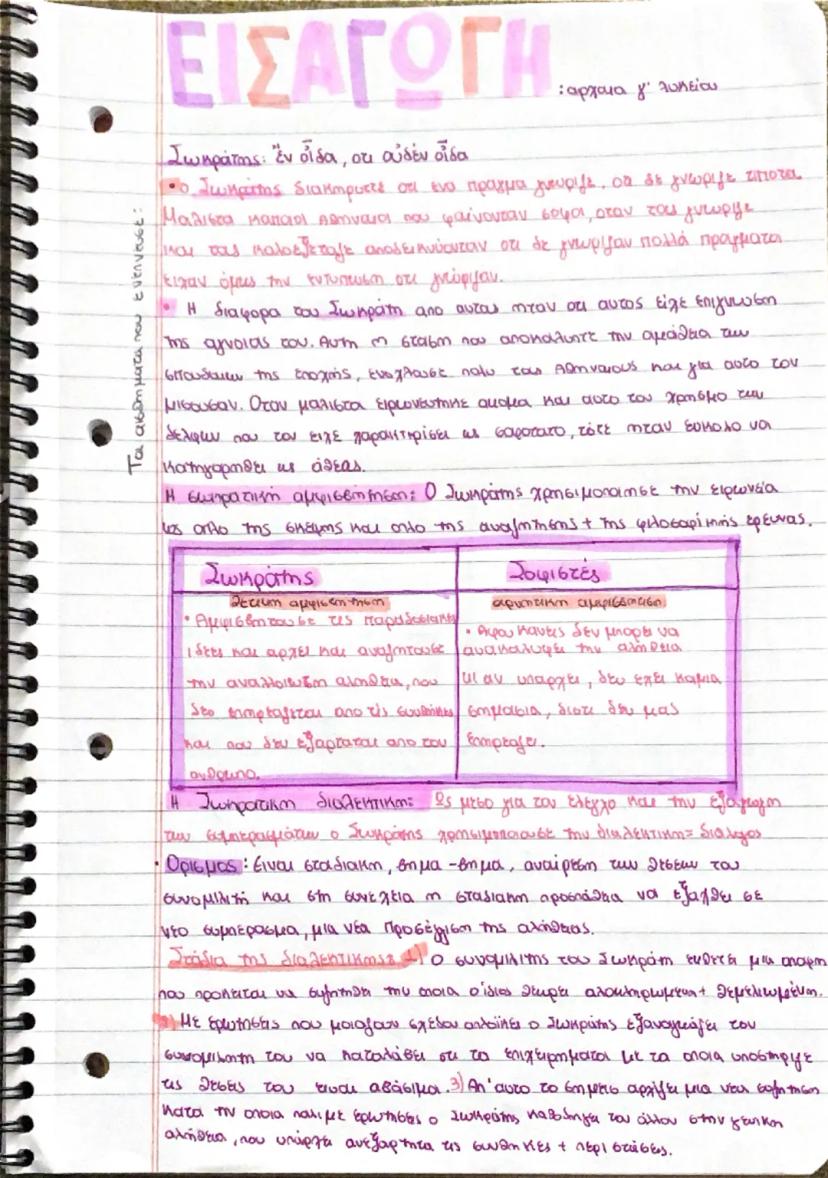 ΕΙΣΑΓΩΓΗ : αρχαια γ' λυκειου
Σωκράτης: Ἕν οἶδα, οτι οὐδέν οἶδα
• Ο Σωκράτης διακηρυττε οτι ενα πραγμα γνωριζε, οτι δε γνωριζε τιποτα
Μαλιστα καποιοι Αθηναιοι που φαινονταν σοφοι, οταν τους γνωριζε
και τους καλοεξεταζε αποδεικνυονταν οτι δε γνωριζαν πολλά πραγματα
ειχαν όμως την εντυπωση οτι γνώριζαν.
• Η διαφορα του Σωκράτη απο αυτους ηταν οτι αυτος είχε επιγνωση
της αγνοιας του. Αυτη η σταση που αποκαλυπτε την αμάθεια των
σπουδαιων της εποχής, ενοχλουσε πολυ τους Αθηναιους και για αυτο τον
μισουσαν. Οταν μαλιστα ειρωνευτηκε ακομα και αυτο τον χρησμο των
δελφων που τον ειχε χαρακτηρίσει ως σοφοτατο, τότε ηταν ευκολο να
κατηγορηθει ως άθεος.
Η σωκρατική αμφισβητηση: Ο Σωκράτης χρησιμοποιησε την ειρωνεία
ως οπλο της σκεψης και οπλο της αναζητησης + της φιλοσοφικής ερευνας.
Σωκράτης
Σοφιστές
θετικη αμφισβητηση
αρνητικη αμφισβητιση
• Αμφισβητουσε τις παραδοσιακε
ιδεες και αρχει και αναζητουσε
την αναλλοιωτη αληθεια, που
δεν επηρεαζεται απο τις συνθήκες
και που δεν εξαρταται απο τον
ανθρωπο.
• Αφου κανεις δεν μπορει να
ανακαλυψει την αληθεια
κι αν υπαρχει, δεν εχει καμια
σημασια, διοτι δεν μας
επηρεαζει.
Η Σωκρατικη διαλεκτικη: Ως μεσο για τον ελεγχο και την εξαγωγη
των συμπερασμάτων ο Σωκράτης χρησιμοποιουσε την διαλεκτικη= διαλογος
• Ορισμος: Ειναι σταδιακη, βημα -βημα, αναίρεση των θεσεων του
συνομιλιτή και στη συνέχεια η σταδιακη προσπάθεια να εξαχθει σε
νεο συμπερασμα, μια νεα προσέγγιση της αλήθειας.
Στάδια της διαλεκτικης: 1) Ο συνομιλιτης του Σωκράτη εκθετει μια αποψη
που προκειται να συζητηθει την οποια ο ιδιος θεωρει ολοκληρωμενη + θεμελιωμένη.
2) Με ερωτησεις που μοιαζουν σχεδον απλοϊκες ο Σωκράτης εξαναγκάζει τον
συνομιλητη του να καταλάβει οτι τα επιχειρηματα με τα οποια υποστηριζε
τις θεσεις του ειναι αβάσιμα. 3) Απ' αυτο το σημειο αρχιζει μια νεα συζητηση
κατα την οποια παλι με ερωτησεις ο Σωκράτης καθοδηγει τον άλλον στην γενικη
αλήθεια, που υπάρχει ανεξαρτητα τις συνθηκες + περιστάσεις.
Τα αισθηματα που ενεπνευσε: